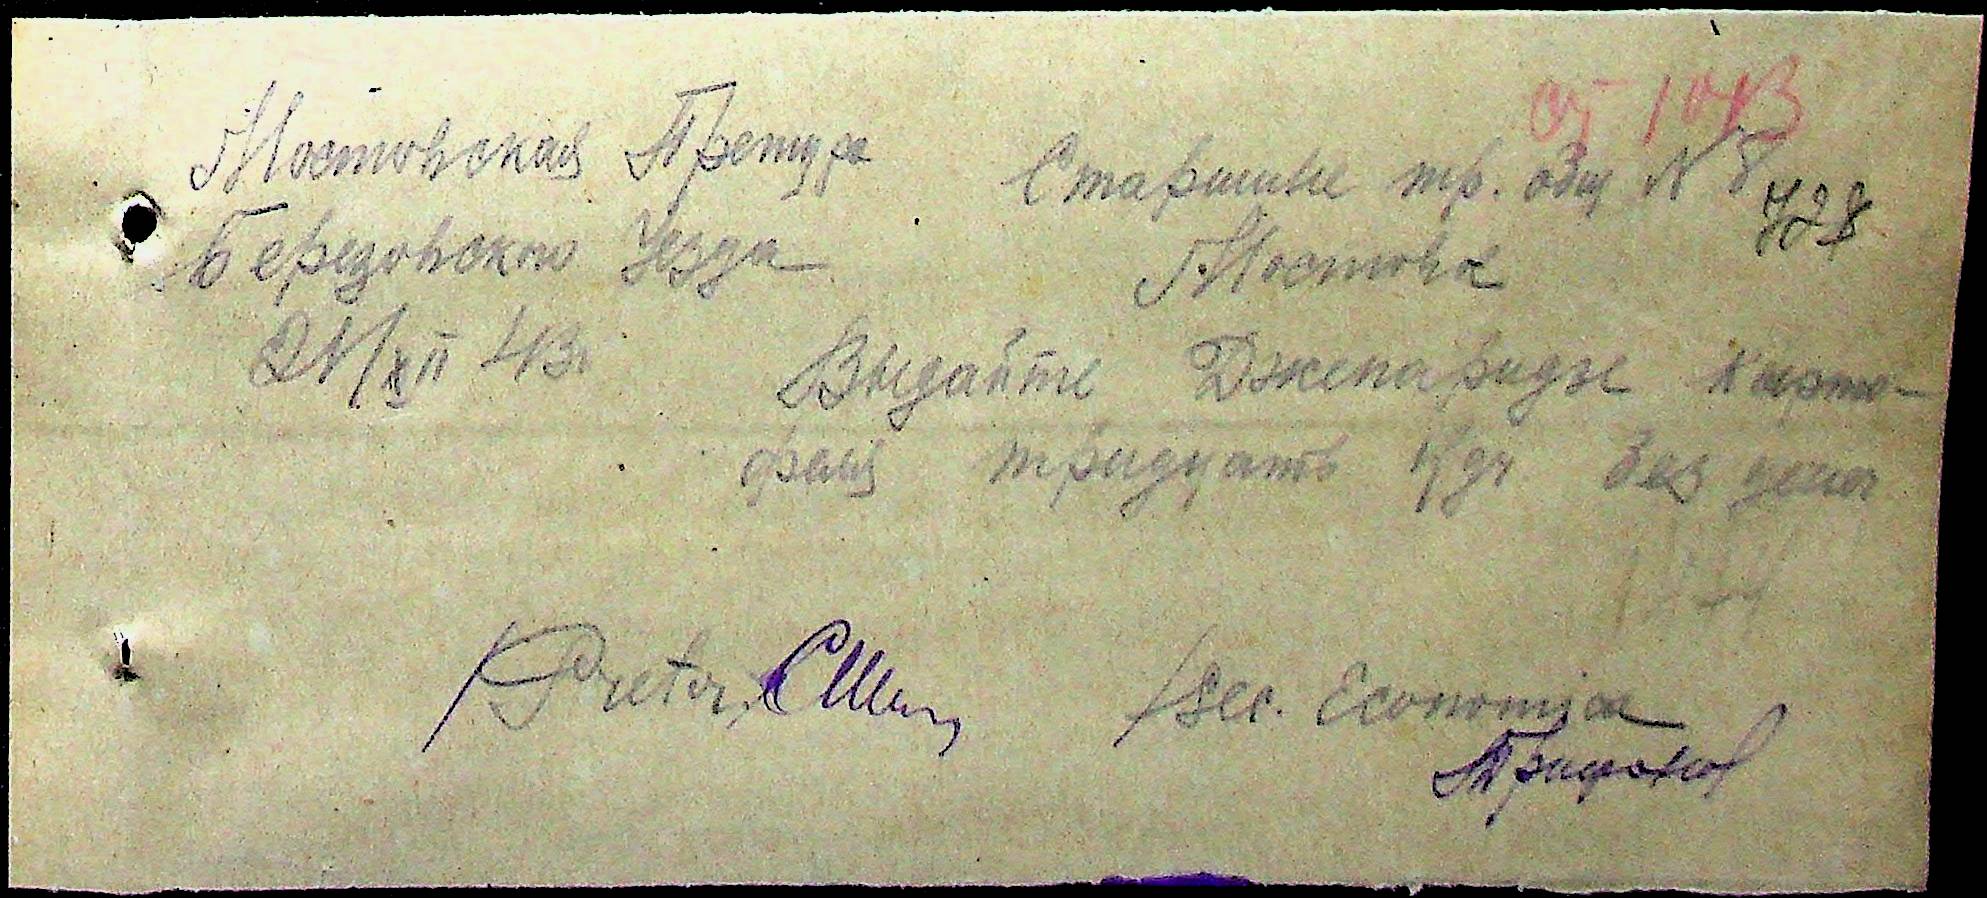 Мостовская Претура
Березовского Уезда
XII 43г
Старшине тр. общ N 8
728
Мостовое
Выдайте Джепаридзе карто-
феля тридцать кгр без цена
Pretor,
Sec. Economica
Трифонов